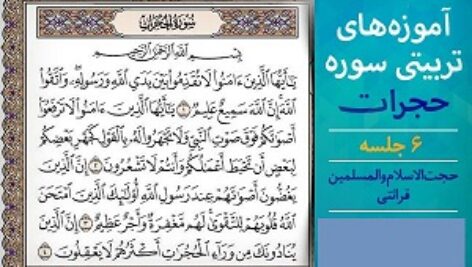 سورة الحجرات
بسم الله الرحمن الرحيم
يَـٰٓأَيُّهَا ٱلَّذِينَ ءَامَنُوا۟ لَا تُقَدِّمُوا۟ بَيْنَ يَدَىِ ٱللَّهِ وَرَسُولِهِۦ ۖ وَٱتَّقُوا۟
ٱللَّهَ ۚ إِنَّ ٱللَّهَ سَمِيعٌ عَلِيمٌ ١ يَـٰٓأَيُّهَا ٱلَّذِينَ ءَامَنُوا۟ لَا تَرْفَعُوٓا۟
أَصْوَٰتَكُمْ فَوْقَ صَوْتِ ٱلنَّبِىِّ وَلَا تَجْهَرُوا۟ لَهُۥ بِٱلْقَوْلِ كَجَهْرِ بَعْضِكُمْ
لِبَعْضٍ أَن تَحْبَطَ أَعْمَـٰلُكُمْ وَأَنتُمْ لَا تَشْعُرُونَ ٢ إِنَّ ٱلَّذِينَ
يَغُضُّونَ أَصْوَٰتَهُمْ عِندَ رَسُولِ ٱللَّهِ أُو۟لَـٰٓئِكَ ٱلَّذِينَ ٱمْتَحَنَ
ٱللَّهُ قُلُوبَهُمْ لِلتَّقْوَىٰ ۚ لَهُم مَّغْفِرَةٌ وَأَجْرٌ عَظِيمٌ ٣ إِنَّ ٱلَّذِينَ
يُنَادُونَكَ مِن وَرَآءِ ٱلْحُجُرَٰتِ أَكْثَرُهُمْ لَا يَعْقِلُونَ ٤
آموزه‌های
تربیتی سوره
حجرات
۶ جلسه
حجت‌الاسلام والمسلمین
قرائتی